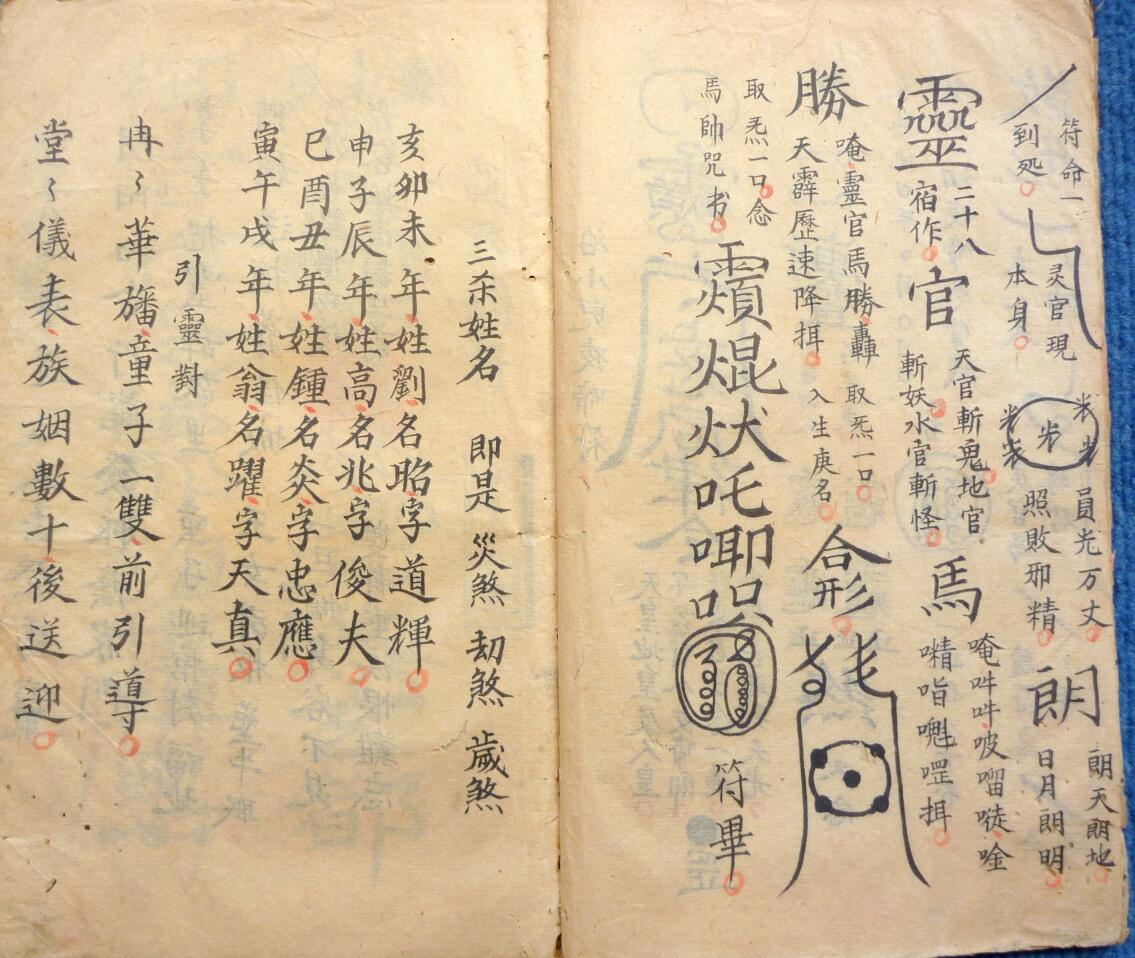 符命一
到処
灵官現
本身
員光万丈
照敗邪精
朗
朗天朗地
日月朗明
靈
二十八
宿作
官
天官斬鬼地官
斬妖水官斬怪
馬
唵吽吽㖠嚁㗭唫
勝
唵靈官馬勝轟
天霹歷速降揖
取炁一口
入生庚名
合形
取炁一口念
馬帥咒书
符畢
三杀姓名 即是 災煞 刧煞 歲煞
亥卯未年姓劉名昭字道輝
申子辰年姓高名兆字俊夫
巳酉丑年姓鍾名炎字忠應
寅午戌年姓翁名躍字天真
引靈對
冉〻華旛童子一雙前引導
堂〻儀表族姻數十後送迎